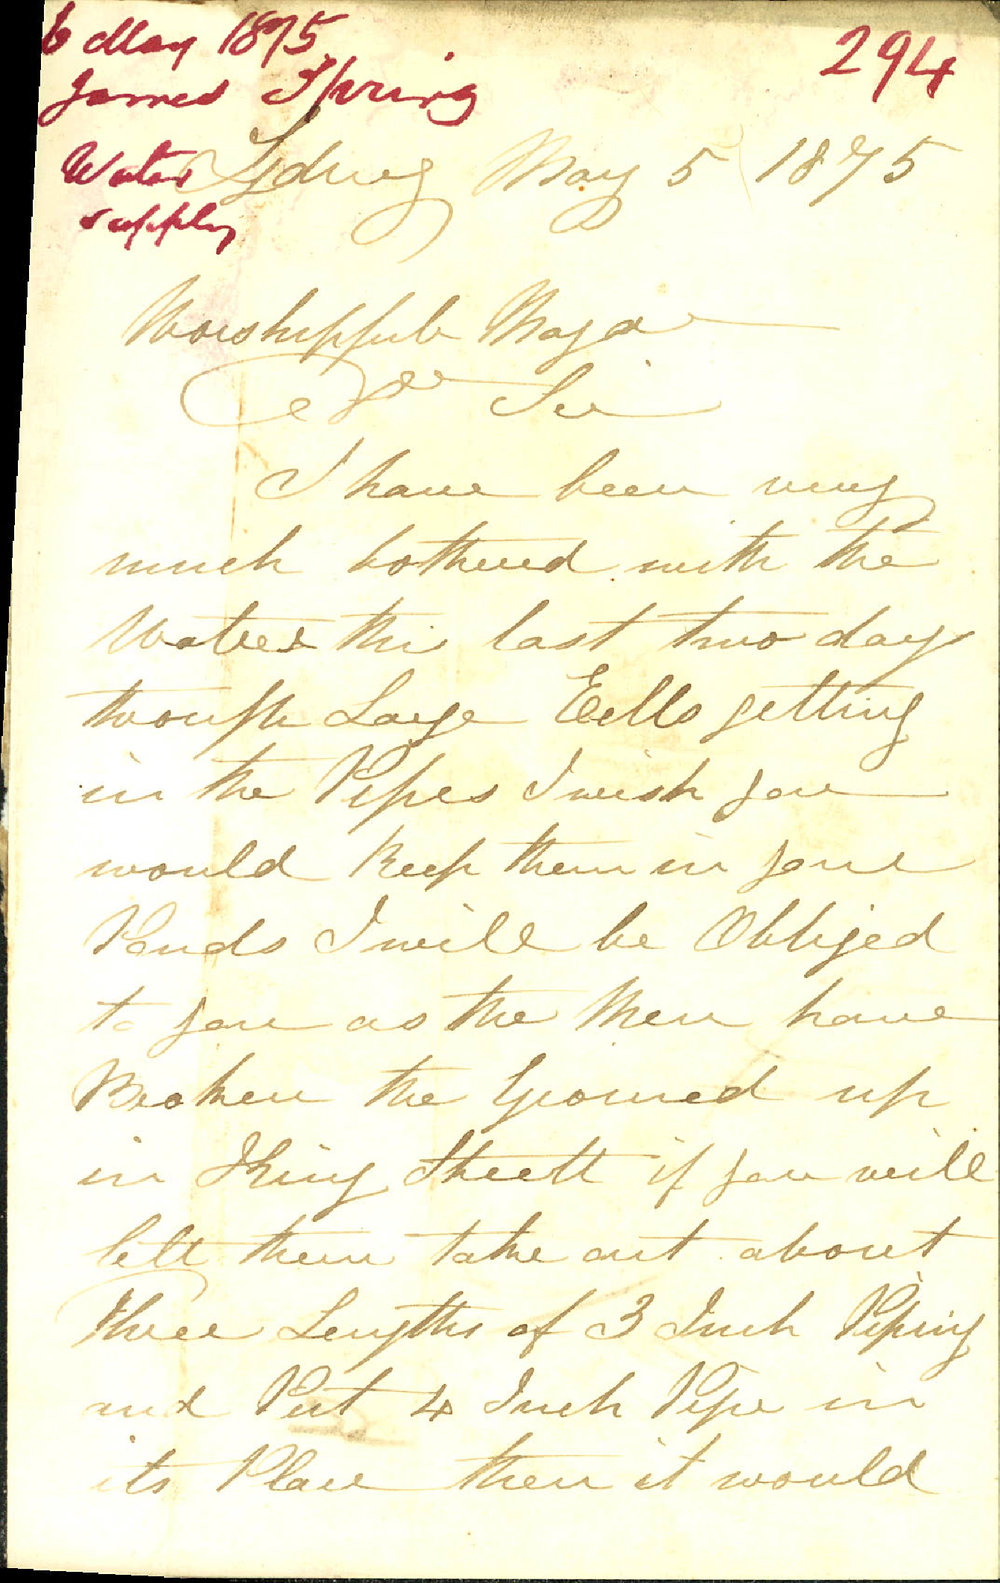 6 May 1875
294
James Spring
Water
supply
Sydney May 5 1875
Worshipfull Mayor
Dr Sir
I have been very
much bothered with the
Water this last two day
through Large Eells getting
in the Pipes I wish you
would Keep them in your
Ponds I will be Obliged
to you as the Men have
Broken the Ground up
in King Streett if you will
lett them take out about
three Lengths of 3 Inch Piping
and Put 4 Inch Pipe in
its Place then it would